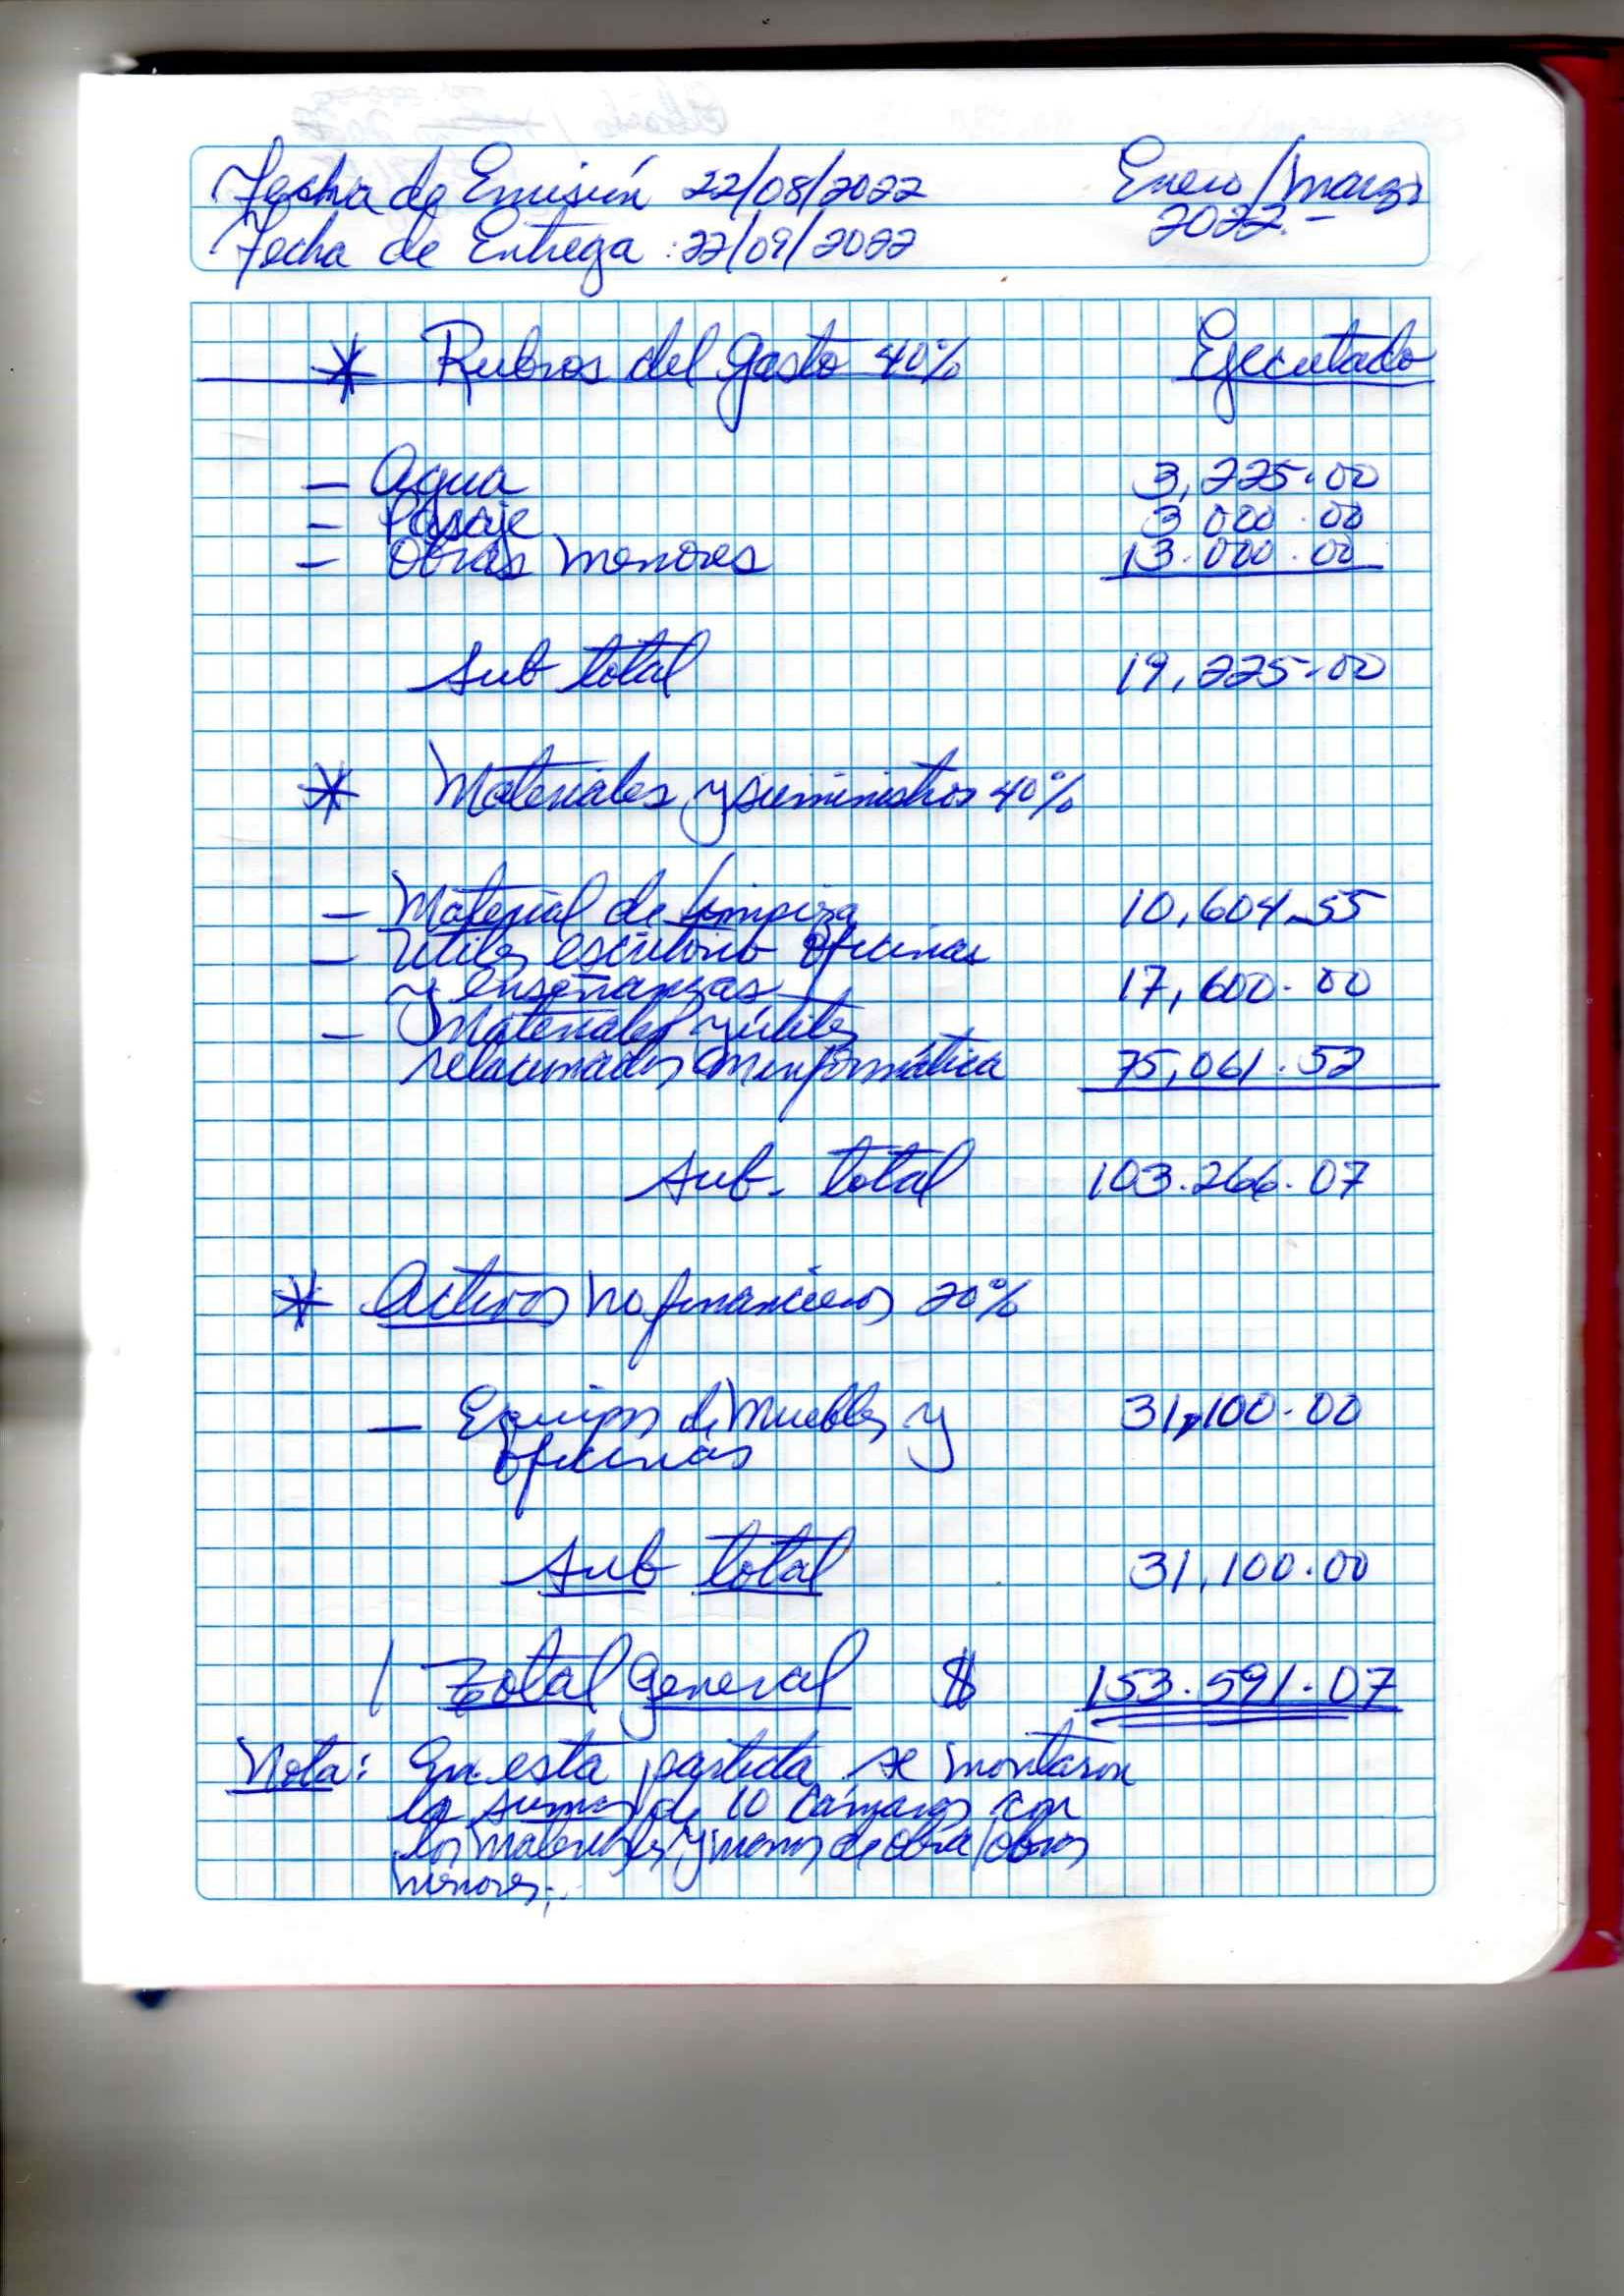 Fecha de Emisión 22/08/2022 Enero/marzo
Fecha de Entrega : 22/09/2022 2022.-
* Rubros del gasto 40% Ejecutado
- Agua 3,225.00
- Pasaje 3 000.00
- Obras menores 13.000.00
Sub total 19,225.00
* Materiales y suministros 40%
- Material de limpieza 10,604.55
- Utiles escritorio oficinas
y enseñanzas 17,600.00
- Materiales y útiles
relacionados con informática 75,061.52
Sub. total 103.266.07
* Activos no financieros 20%
- Equipos de Muebles y 31,100.00
oficinas
Sub total 31,100.00
Total General $ 153.591.07
Nota: En esta partida se montaron
la suma de 10 Cámaras con
los materiales y manos de obra/obras
menores.